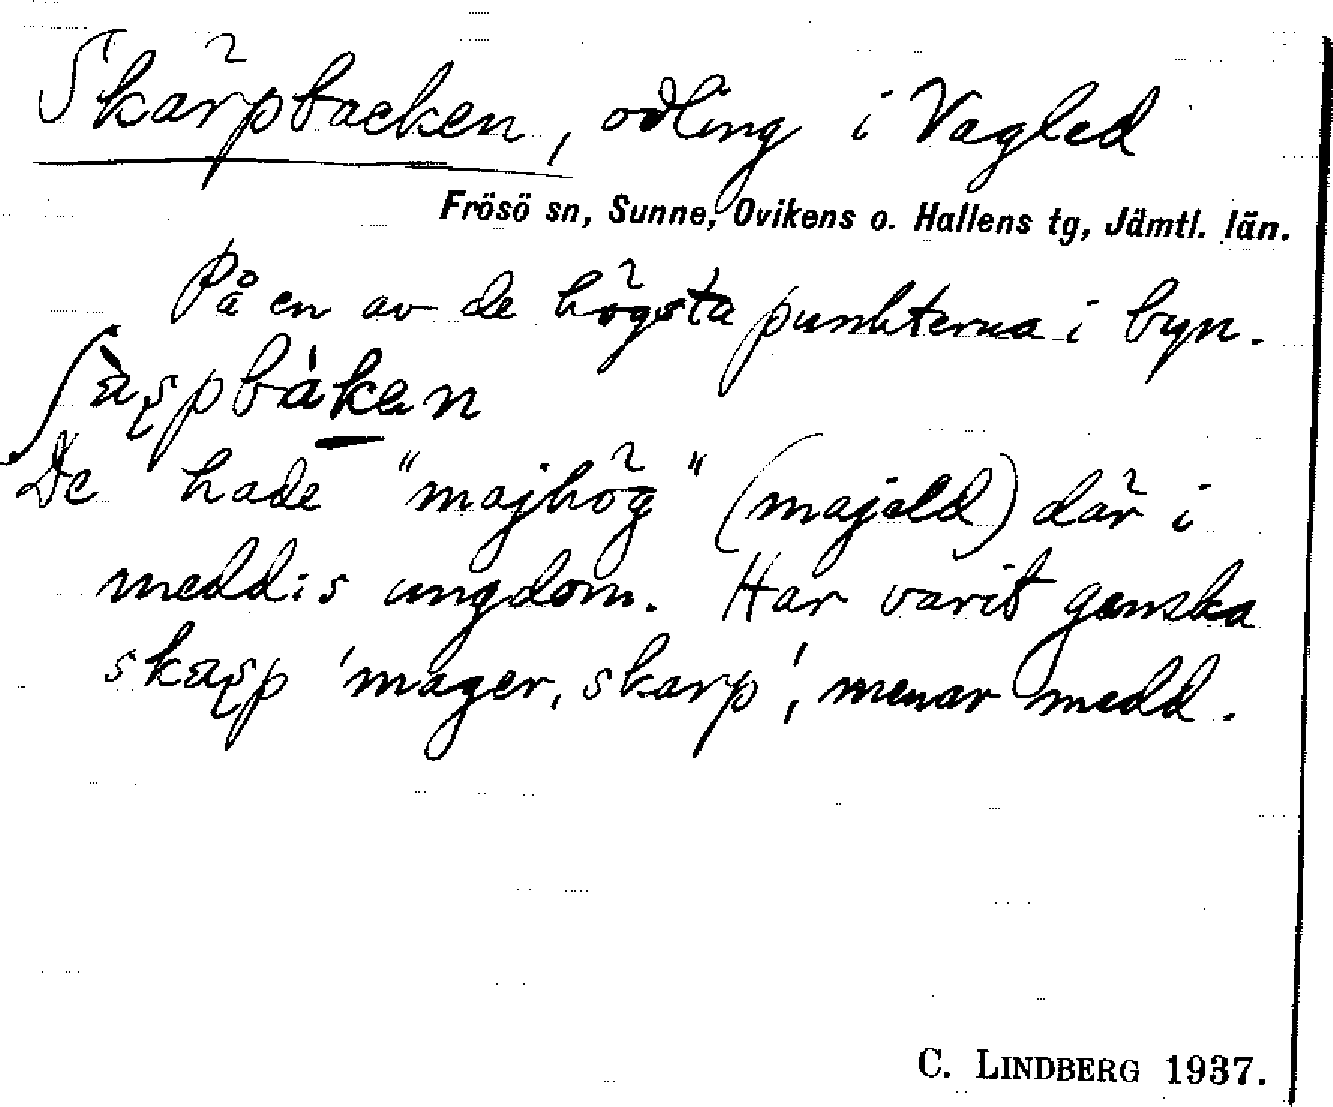 Skärpbacken, odling i Vagled
Frösö sn, Sunne, Ovikens o. Hallens tg, Jämtl. län.
På en av de högsta punkterna i byn.
De hade "majhög" (majeld) där i
medd:s ungdom. Har varit ganska
'mager, skarp', menar medd.
C. LINDBERG 1937.